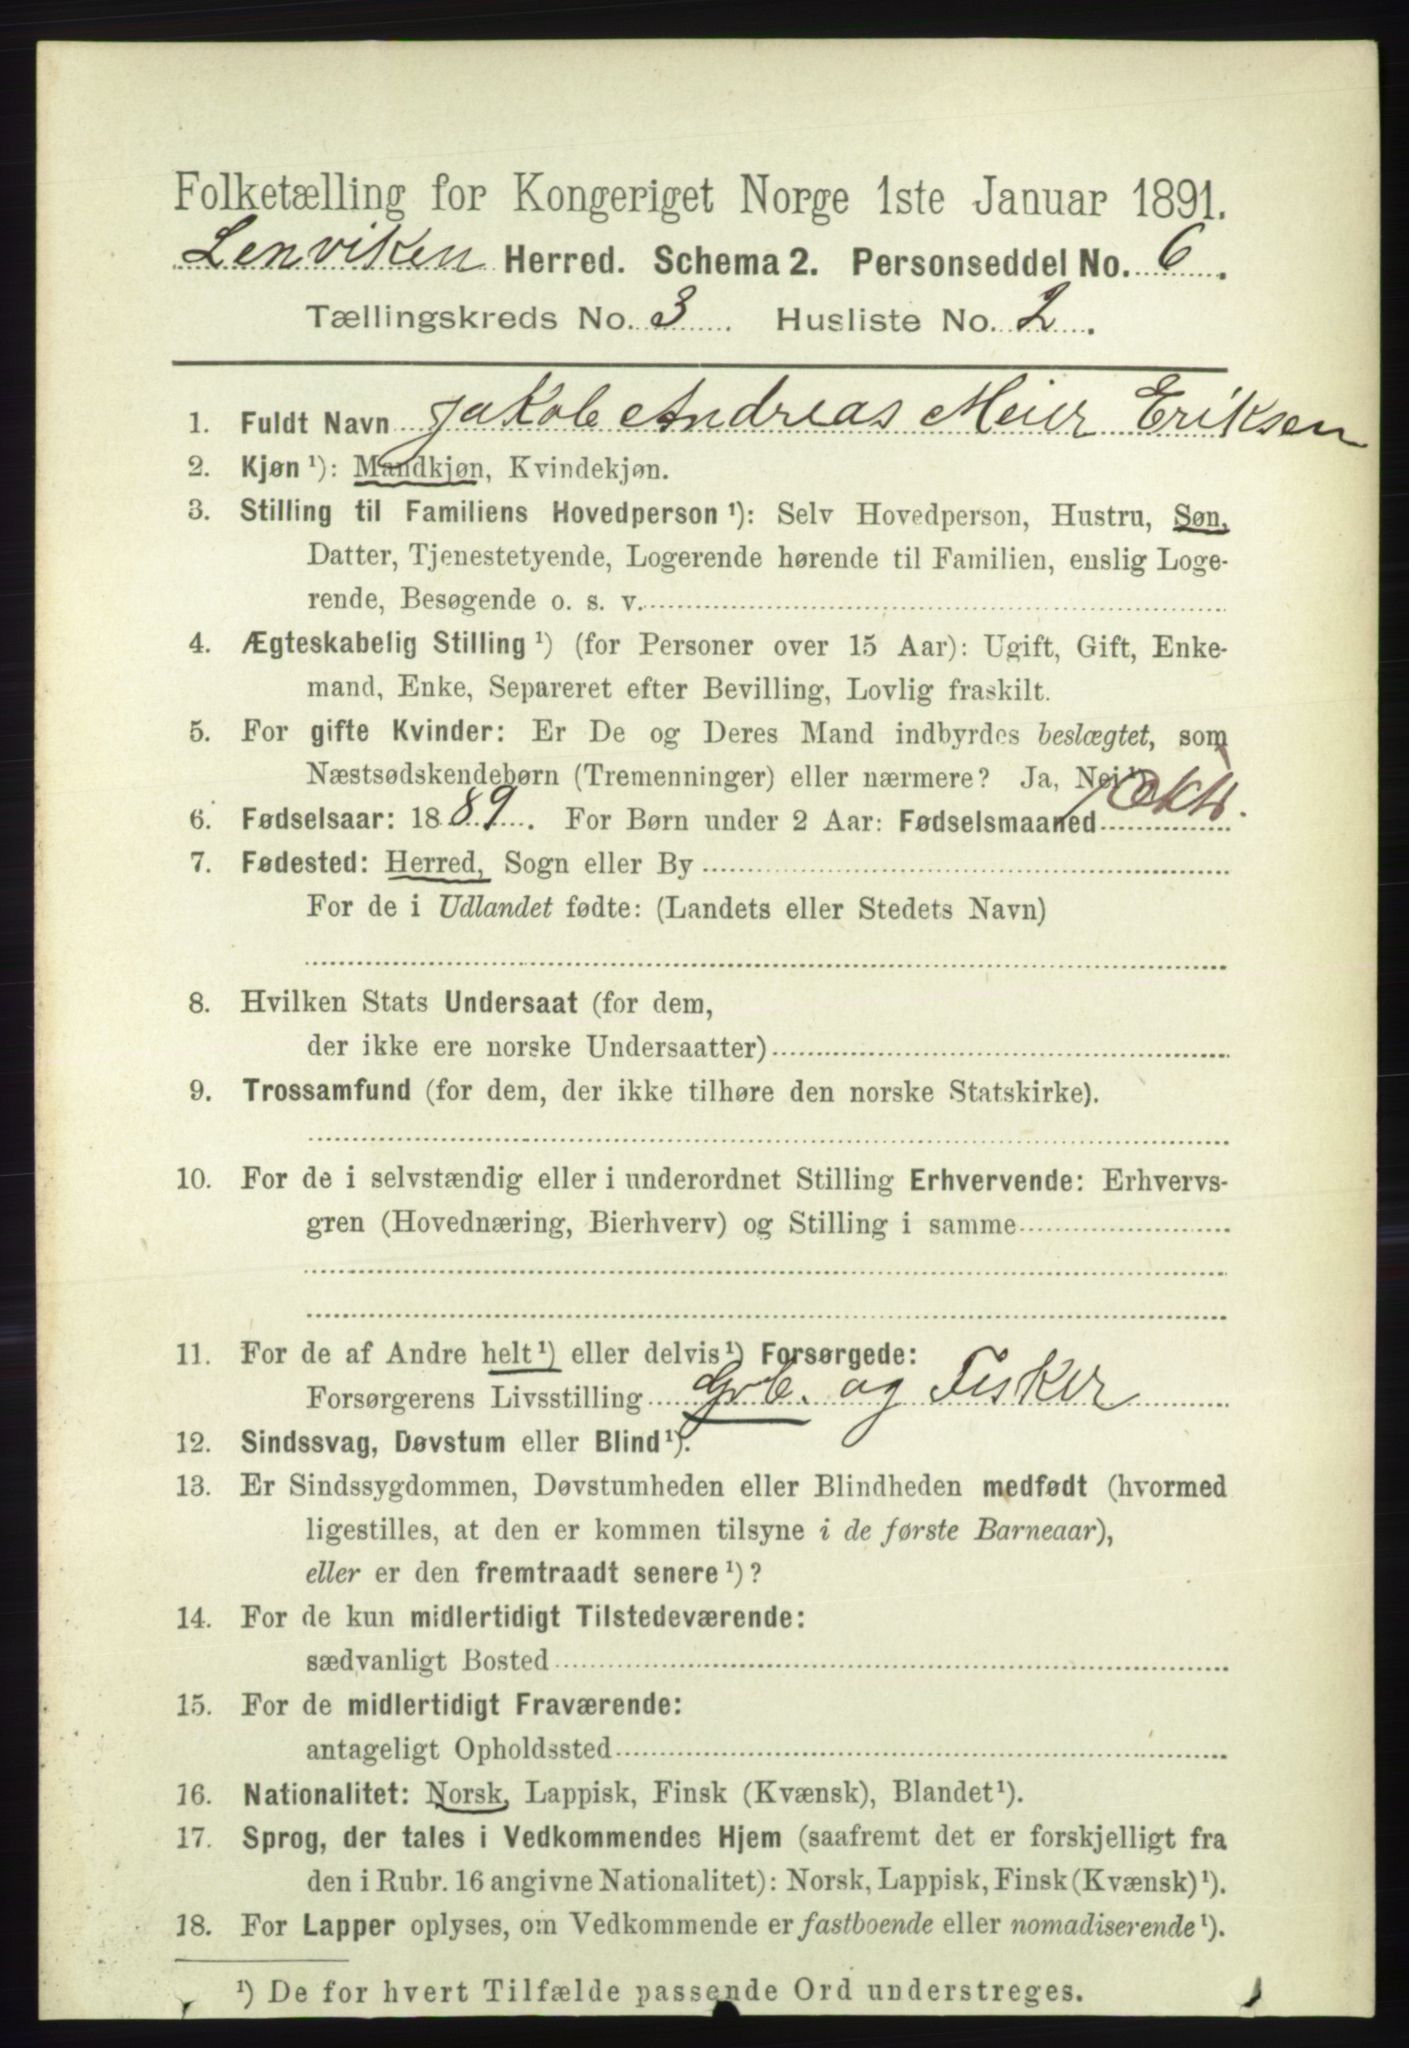 Folketælling for Kongeriget Norge 1ste Januar 1891.
Lenviken Herred. Schema 2. Personseddel No. 6.
Tællingskreds No. 3 Husliste No. 2.
1. Fuldt Navn Jakob Andreas Meier Eriksen
2. Kjøn ¹): Mandkjøn, Kvindekjøn.
3. Stilling til Familiens Hovedperson ¹): Selv Hovedperson, Hustru, Søn,
Datter, Tjenestetyende, Logerende hørende til Familien, enslig Loge-
rende, Besøgende o. s. v.
4. Ægteskabelig Stilling ¹) (for Personer over 15 Aar): Ugift, Gift, Enke-
mand, Enke, Separeret efter Bevilling, Lovlig fraskilt.
5. For gifte Kvinder: Er De og Deres Mand indbyrdes beslægtet, som
Næstsødskendebørn (Tremenninger) eller nærmere? Ja, Nei ¹)
6. Fødselsaar: 1889. For Børn under 2 Aar: Fødselsmaaned Oktr.
7. Fødested: Herred, Sogn eller By
For de i Udlandet fødte: (Landets eller Stedets Navn)
8. Hvilken Stats Undersaat (for dem,
der ikke ere norske Undersaatter)
9. Trossamfund (for dem, der ikke tilhøre den norske Statskirke).
10. For de i selvstændig eller i underordnet Stilling Erhvervende: Erhvervs-
gren (Hovednæring, Bierhverv) og Stilling i samme
11. For de af Andre helt ¹) eller delvis ¹) Forsørgede:
Forsørgerens Livsstilling Grb. og Fisker
12. Sindssvag, Døvstum eller Blind ¹).
13. Er Sindssygdommen, Døvstumheden eller Blindheden medfødt (hvormed
ligestilles, at den er kommen tilsyne i de første Barneaar),
eller er den fremtraadt senere ¹)?
14. For de kun midlertidigt Tilstedeværende:
sædvanligt Bosted
15. For de midlertidigt Fraværende:
antageligt Opholdssted
16. Nationalitet: Norsk, Lappisk, Finsk (Kvænsk), Blandet ¹).
17. Sprog, der tales i Vedkommendes Hjem (saafremt det er forskjelligt fra
den i Rubr. 16 angivne Nationalitet): Norsk, Lappisk, Finsk (Kvænsk) ¹).
18. For Lapper oplyses, om Vedkommende er fastboende eller nomadiserende ¹).
¹) De for hvert Tilfælde passende Ord understreges.